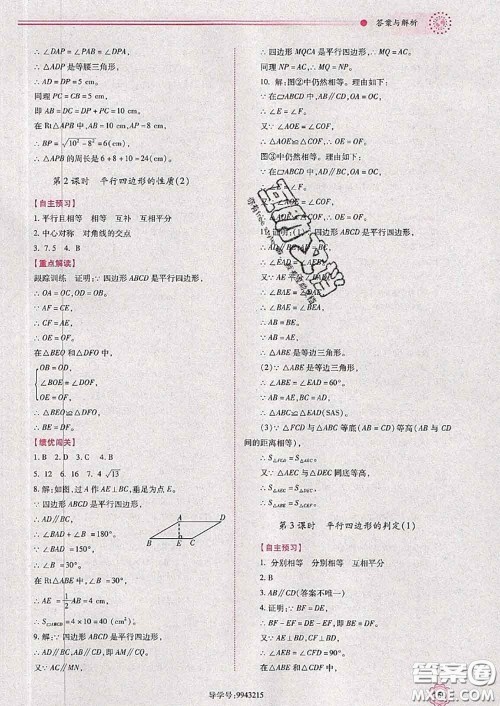 答案与解析
∴∠DAP=∠PAB=∠DPA,
∴△ADP是等腰三角形,
∴AD=DP=5 cm.
同理 PC=CB=5 cm.
即 AB=DC=DP+PC=10 cm.
在Rt△APB中,AB=10 cm,AP=8 cm,
∴BP=√10²-8²=6(cm).
∴△APB的周长是6+8+10=24(cm).
第2课时 平行四边形的性质(2)
【自主预习】
1. 平行且相等 相等 互补 互相平分
2. 中心对称 对角线的交点
3. 7.5 4. B
【重点解读】
跟踪训练 证明:∵四边形ABCD是平行四边形,
∴OA=OC,OB=OD.
∵AF=CE,
∴CF=AE,
∴OE=OF.
在△BEO和△DFO中,
OB=OD,
∠BOE=∠DOF,
OE=OF,
∴△BEO≌△DFO,
∴BE=DF.
【绩优闯关】
1. B 2. D 3. C 4. B
5. 12 6. 16 7. 4√13
8. 解:如图,过A作AE⊥BC,垂足为点E.
∵四边形ABCD是平行四边形,
∴AD∥BC,
∴∠BAD+∠B=180°,
∵∠BAD=150°,
∴∠B=30°,
在Rt△ABE中,∠B=30°,
∴AE=1/2AB=4 cm,
∴S▱ABCD=4×10=40(cm²).
A D
B E C
9. 解:∵四边形ABCD是平行四边形,
∴AD∥BC,AD=BC,即AM∥CQ.
又∵AC∥MN,
∴四边形MQCA是平行四边形,
∴MQ=AC.同理NP=AC.
∴MQ=NP.
10. 解:图②中仍然相等.理由如下:
∵在▱ABCD中,AB∥CD,OA=OC,
又∵∠AOE=∠COF,
∴△AOE≌△COF,
∴OE=OF.
图③中仍然相等.理由如下:
∵在▱ABCD中,AD∥BC,OA=OC,
又∵∠AOE=∠COF,
∴OE=OF.
∴∠EAD=∠AEB,
∴AB=BE.
∴AB=BE=AE,
∴△ABE是等边三角形,
(2)∵△ABE是等边三角形,
∴△ABC≌△EAD(SAS).
(3)∵△FCD与△AEC等底等高(AB与CD间的距离相等),
∴S△FCD=S△AEC.
又∵△AEC与△DEC同底等高,
第3课时 平行四边形的判定(1)
【自主预习】
1. 分别相等 分别相等 互相平分
2. B
3. AB∥CD(答案不唯一)
4. 证明:∵BF=DE,
∴BF-EF=DE-EF,即BE=DF.
又∵AE⊥BD,CF⊥BD,
导学号:9943215
答案圈
MXQE.COM